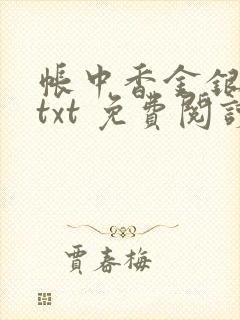 帳中香金銀
txt 免費閱讀
賈春梅